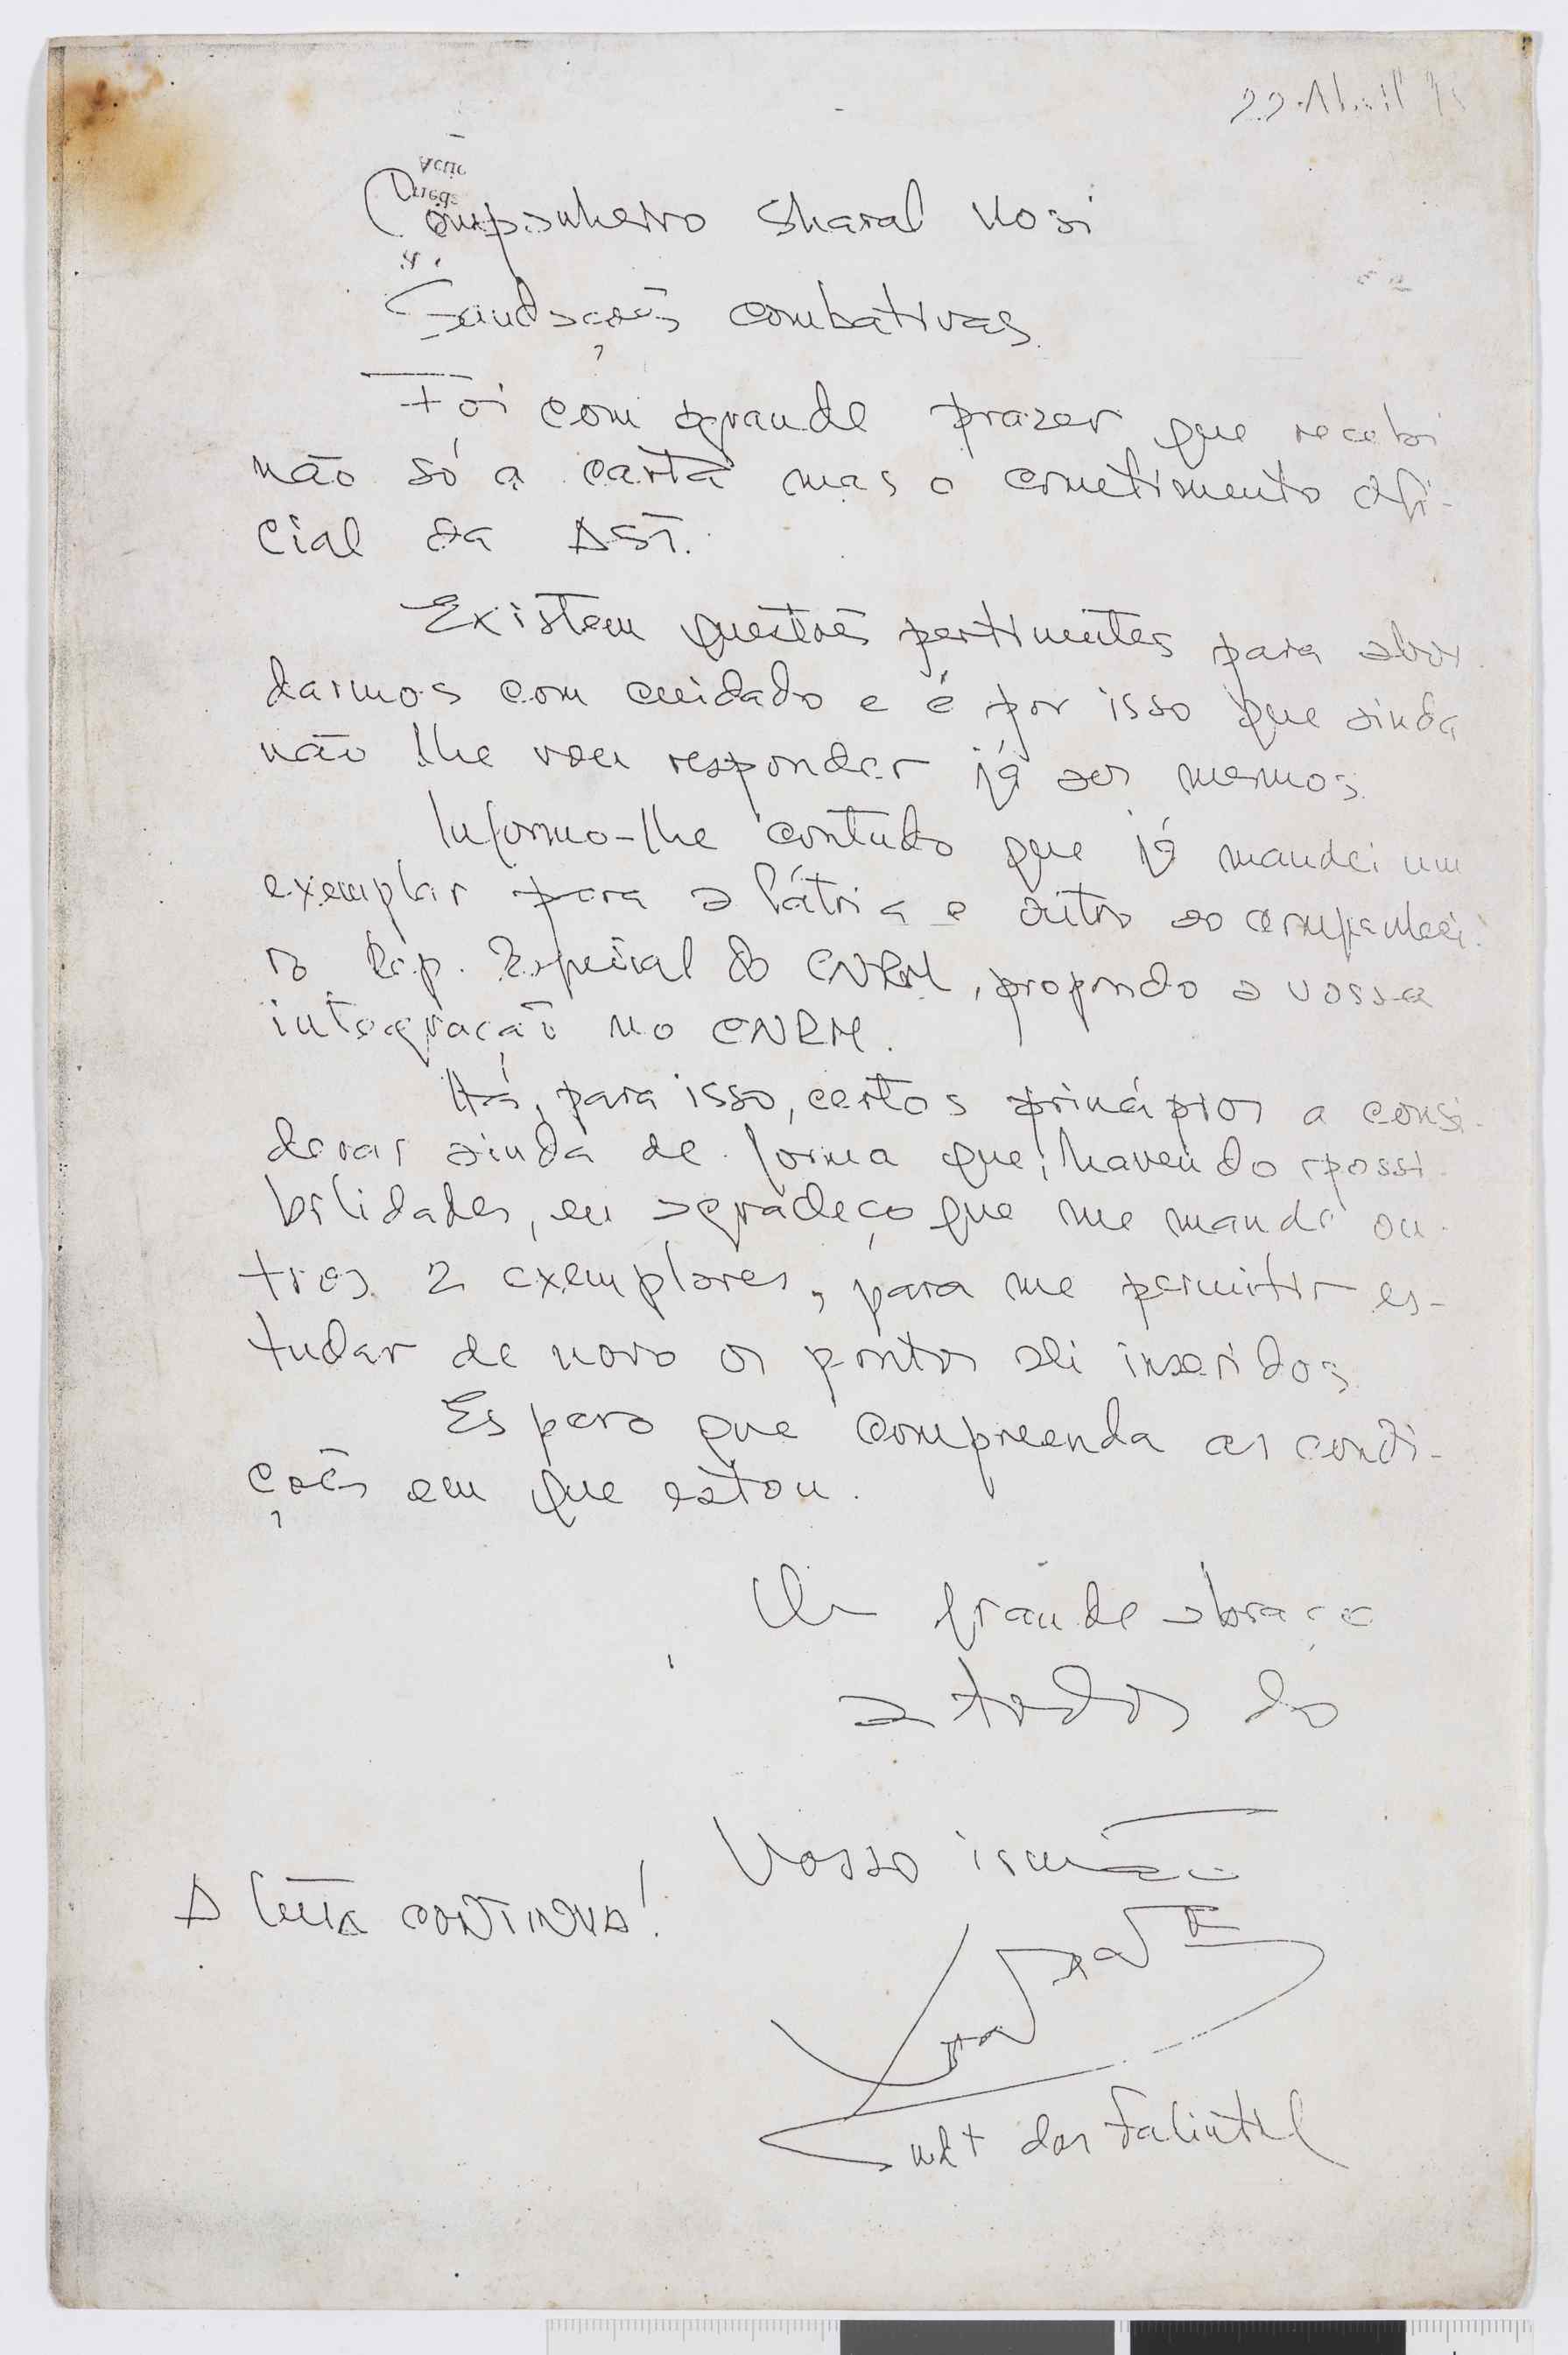 22 Abril
Companheiro Sharal Kosi
Saudações combativas.
Foi com grande prazer que recebi
não só a carta mas o cometimento ofi-
cial da AST.
Existem questões pertinentes para abor
darmos com cuidado e é por isso que ainda
não lhe vou responder já aos mesmos.
Informo-lhe contudo que já mandei um
exemplar para a Pátria e outro ao companhei
ro Rep. Especial do CNRM, propondo a vossa
integração no CNRM.
Há, para isso, certos princípios a consi-
derar ainda de forma que, havendo possi
bilidades, eu agradeço que me mande ou-
tros 2 exemplares, para me permitir es-
tudar de novo os pontos ali inseridos.
Espero que compreenda as condi-
ções em que estou.
Um grande abraço
a todos do
Vosso irmão
A luta CONTINUA!
Cmdt das Falintil